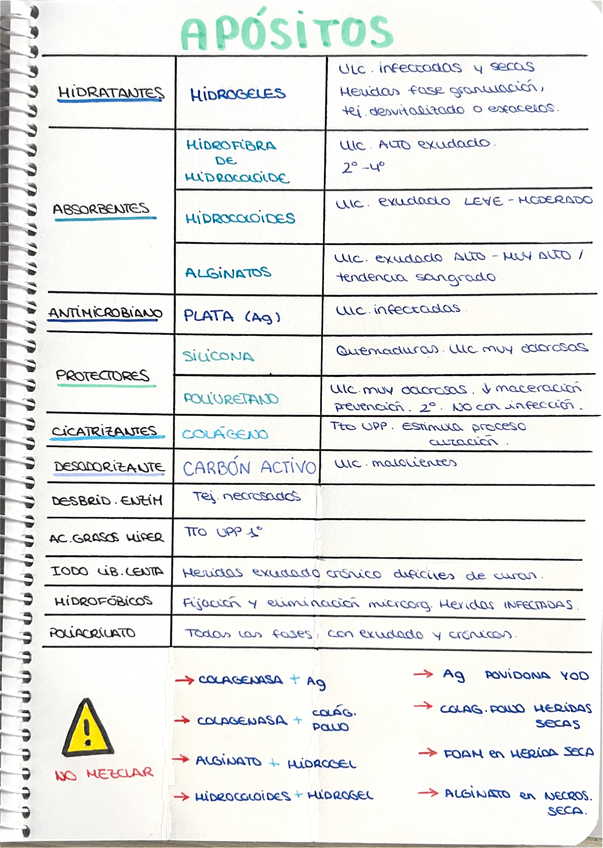 APÓSITOS
HIDRATANTES
HIDROGELES
Ulc. infectadas y secas
Heridas fase granulación,
tej. desvitalizado o esfacelos.
ABSORBENTES
HIDROFIBRA
DE
HIDROCOLOIDE
Ulc. ALTO exudado.
2º-4º
HIDROCOLOIDES
Ulc. exudado LEVE - MODERADO
ALGINATOS
Ulc. exudado ALTO - MUY ALTO /
tendencia sangrado
ANTIMICROBIANO
PLATA (Ag)
Ulc. infectadas
PROTECTORES
SILICONA
Quemaduras. Ulc muy dolorosas
POLIURETANO
Ulc. muy dolorosas. ↓ maceración
prevención. 2º. NO con infección.
CICATRIZANTES
COLÁGENO
Tto UPP. Estimula proceso
curación.
DESODORIZANTE
CARBÓN ACTIVO
Ulc. malolientes
DESBRID. ENZIM
Tej. necrosados
AC. GRASOS HIPER
TTO UPP 1º
IODO LIB. LENTA
Heridas exudado crónico difíciles de curar.
HIDROFÓBICOS
Fijación y eliminación microorg. Heridas INFECTADAS.
POLIACRILATO
Todas las fases, con exudado y crónicas.
NO MEZCLAR
→ COLAGENASA + Ag
→ COLAGENASA + COLÁG.
POLVO
→ ALGINATO + HIDROGEL
→ HIDROCOLOIDES + HIDROGEL
→ Ag POVIDONA YOD
→ COLAG. POLVO HERIDAS
SECAS
→ FOAM en HERIDA SECA
→ ALGINATO en NECROS.
SECA.